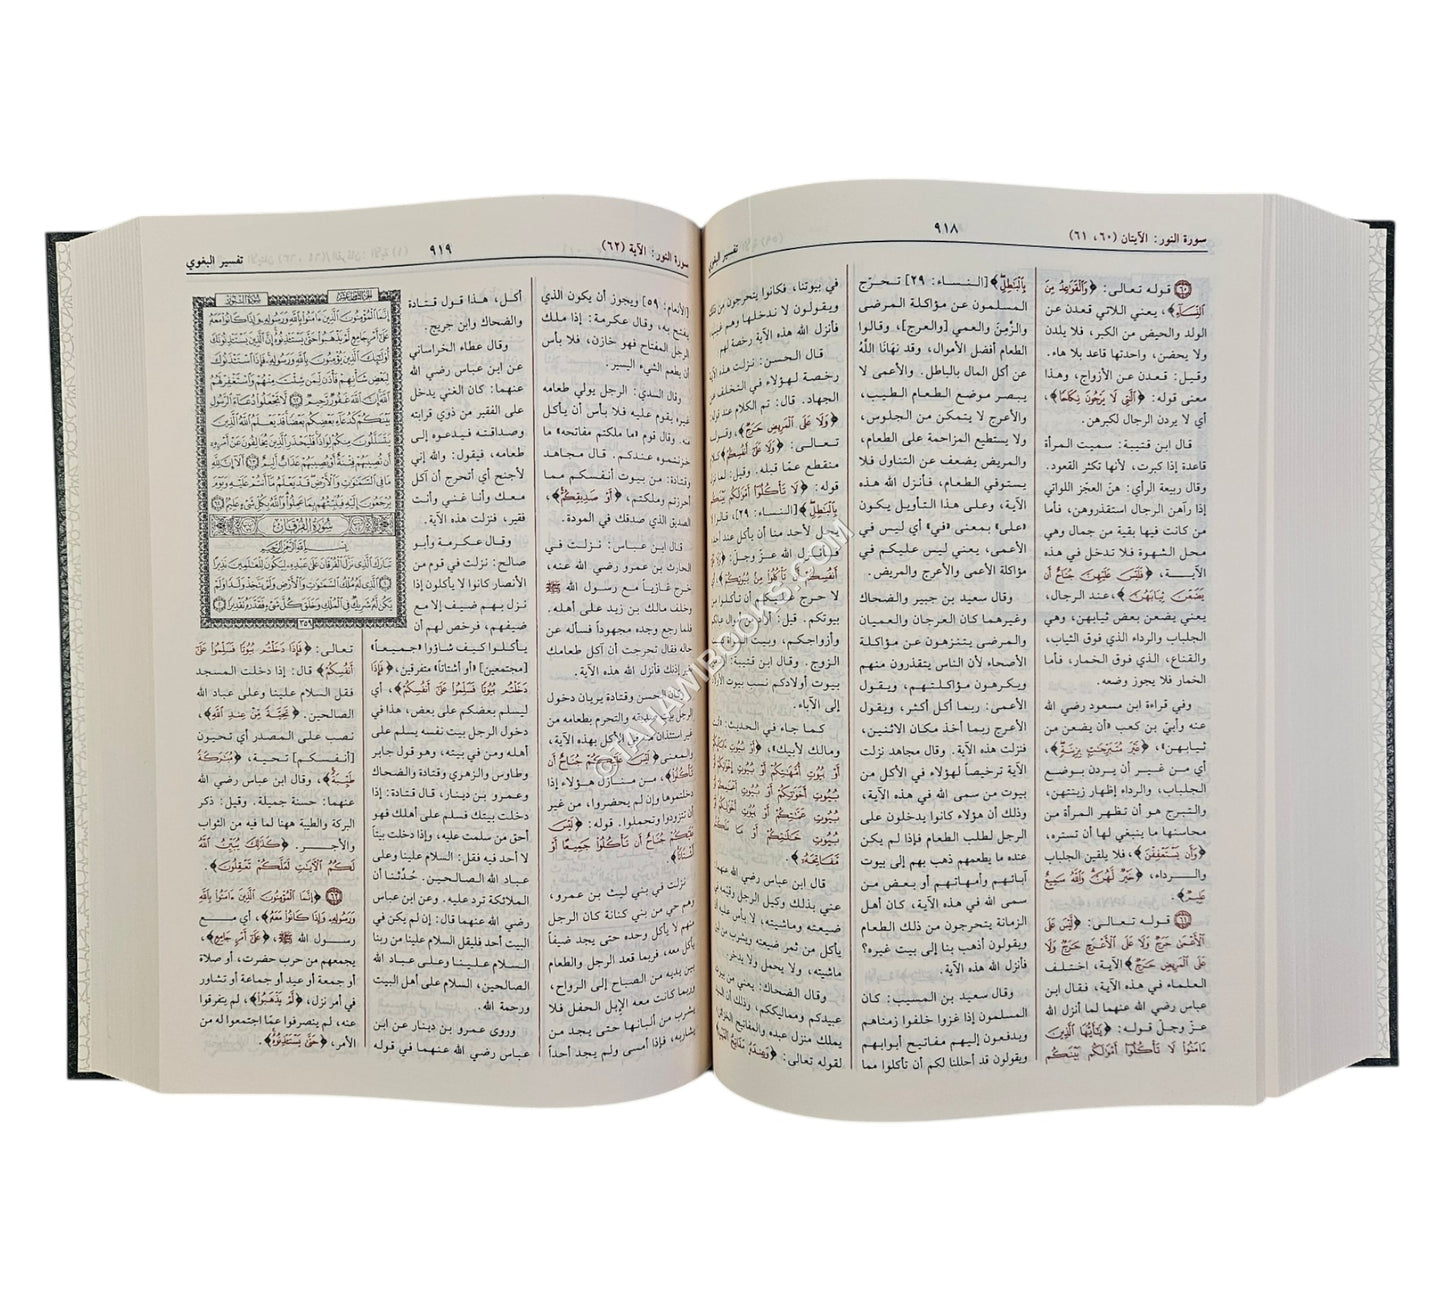 سورة النور: الآيتان (٦٠، ٦١)
٩١٨
تفسير البغوي
٦٠ قوله تعالى: ﴿وَالْقَوَاعِدُ مِنَ
النِّسَاءِ﴾، يعني اللاتي قعدن عن
الولد والحيض من الكبر، فلا يلدن
ولا يحضن، واحدتها قاعد بلا هاء.
وقيل: قعدن عن الأزواج، وهذا
معنى قوله: ﴿الَّتِي لَا يَرْجُونَ نِكَاحًا﴾،
أي لا يردن الرجال لكبرهن.
قال ابن قتيبة: سميت المرأة
قاعدة إذا كبرت، لأنها تكثر القعود.
وقال ربيعة الرأي: هنّ العجَز اللواتي
إذا رآهن الرجال استقذروهن، فأما
من كانت فيها بقية من جمال وهي
محل الشهوة فلا تدخل في هذه
الآية، ﴿فَلَيْسَ عَلَيْهِنَّ جُنَاحٌ أَن
يَضَعْنَ ثِيَابَهُنَّ﴾، عند الرجال،
يعني يضعن بعض ثيابهن، وهي
الجلباب والرداء الذي فوق الثياب،
والقناع، الذي فوق الخمار، فأما
الخمار فلا يجوز وضعه.
وفي قراءة ابن مسعود رضي الله
عنه وأبيّ بن كعب «أن يضعن من
ثيابهن»، ﴿غَيْرَ مُتَبَرِّجَاتٍ بِزِينَةٍ﴾،
أي من غير أن يردن بوضع
الجلباب، والرداء إظهار زينتهن،
والتبرج هو أن تظهر المرأة من
محاسنها ما ينبغي لها أن تستره،
﴿وَأَن يَسْتَعْفِفْنَ﴾، فلا يلقين الجلباب
والرداء، ﴿خَيْرٌ لَّهُنَّ وَاللَّهُ سَمِيعٌ
عَلِيمٌ﴾.
٦١ قوله تعالى: ﴿لَيْسَ عَلَى
الْأَعْمَىٰ حَرَجٌ وَلَا عَلَى الْأَعْرَجِ حَرَجٌ وَلَا
عَلَى الْمَرِيضِ حَرَجٌ﴾ الآية، اختلف
العلماء في هذه الآية، فقال ابن
عباس رضي الله عنهما لما أنزل الله
عزّ وجلّ قوله: ﴿يَا أَيُّهَا الَّذِينَ
آمَنُوا لَا تَأْكُلُوا أَمْوَالَكُم بَيْنَكُم
بِالْبَاطِلِ﴾ [النساء: ٢٩] تحرّج
المسلمون عن مؤاكلة المرضى
والزَّمِنَ والعمي [والعرج]، وقالوا
الطعام أفضل الأموال، وقد نهَانَا اللَّهُ
عن أكل المال بالباطل. والأعمى لا
يبصر موضع الطعام الطيب،
والأعرج لا يتمكن من الجلوس،
ولا يستطيع المزاحمة على الطعام،
والمريض يضعف عن التناول فلا
يستوفي الطعام، فأنزل الله هذه
الآية، وعلى هذا التأويل يكون
«على» بمعنى «في» أي ليس في
الأعمى، يعني ليس عليكم في
مؤاكلة الأعمى والأعرج والمريض.
وقال سعيد بن جبير والضحاك
وغيرهما كان العرجان والعميان
والمرضى يتنزهون عن مؤاكلة
الأصحاء لأن الناس يتقذرون منهم
ويكرهون مؤاكلتهم، ويقول
الأعمى: ربما أكل أكثر، ويقول
الأعرج ربما أخذ مكان الاثنين،
فنزلت هذه الآية. وقال مجاهد نزلت
الآية ترخيصاً لهؤلاء في الأكل من
بيوت من سمى الله في هذه الآية،
وذلك أن هؤلاء كانوا يدخلون على
الرجل لطلب الطعام فإذا لم يكن
عنده ما يطعمهم ذهب بهم إلى بيوت
آبائهم وأمهاتهم أو بعض من
سمى الله في هذه الآية، كان أهل
الزمانة يتحرجون من ذلك
ويقولون أذهب بنا إلى بيت غيره؟
فأنزل الله هذه الآية.
وقال سعيد بن المسيب: كان
المسلمون إذا غزوا خلفوا زمناهم
ويدفعون إليهم مفاتيح أبوابهم
ويقولون قد أحللنا لكم أن تأكلوا مما
في بيوتنا، فكانوا يتحرجون من ذلك
ويقولون لا ندخلها وهم غيب،
فأنزل الله هذه الآية رخصة لهم
قال الحسن: نزلت هذه الآية
رخصة لهؤلاء في التخلف عن
الجهاد. قال: تم الكلام عند قوله:
﴿وَلَا عَلَى الْمَرِيضِ حَرَجٌ﴾، وقوله
تعالى: ﴿وَلَا عَلَىٰ أَنفُسِكُمْ﴾ كلام
منقطع عمّا قبله. وقيل: لما نزل
قوله: ﴿لَا تَأْكُلُوا أَمْوَالَكُم بَيْنَكُم
بِالْبَاطِلِ﴾ [النساء: ٢٩]، قالوا لا
يحل لأحد منا أن يأكل عند أحد،
فأنزل الله عزّ وجلّ:
أَنفُسِكُمْ أَن تَأْكُلُوا مِن بُيُوتِكُمْ﴾ أي
لا حرج عليكم أن تأكلوا من
بيوتكم. قيل: أموال عيالكم
وأزواجكم، وبيت المرأة
الزوج. وقال ابن قتيبة:
بيوت أولادكم نسب بيوت الأولاد
إلى الآباء.
كما جاء في الحديث: «أنت
ومالك لأبيك»،
أَوْ بُيُوتِ أُمَّهَاتِكُمْ أَوْ بُيُوتِ إِخْوَانِكُمْ أَوْ
بُيُوتِ أَخَوَاتِكُمْ أَوْ بُيُوتِ أَعْمَامِكُمْ أَوْ
بُيُوتِ عَمَّاتِكُمْ أَوْ بُيُوتِ أَخْوَالِكُمْ أَوْ
بُيُوتِ خَالَاتِكُمْ أَوْ مَا مَلَكْتُم
مَّفَاتِحَهُ﴾.
قال ابن عباس رضي الله عنهما:
عني بذلك وكيل الرجل وقيمه في
ضيعته وماشيته، لا بأس عليه أن
يأكل من ثمر ضيعته ويشرب من لبن
ماشيته، ولا يحمل ولا يدخر.
وقال الضحاك: يعني من بيوت
عبيدكم ومماليككم، وذلك أن السيد
يملك منزل عبده والمفاتيح الخزائن،
لقوله تعالى: ﴿وَعِندَهُ مَفَاتِحُ الْغَيْبِ﴾
سورة النور: الآية (٦٢)
٩١٩
تفسير البغوي
[الأنعام: ٥٩] ويجوز أن يكون الذي
يفتح به، وقال عكرمة: إذا ملك
الرجل المفتاح فهو خازن، فلا بأس
أن يطعم الشيء اليسير.
وقال السدي: الرجل يولي طعامه
غيره يقوم عليه فلا بأس أن يأكل
منه. وقال قوم «ما ملكتم مفاتحه» ما
خزنتموه عندكم. قال مجاهد
وقتادة: من بيوت أنفسكم مما
أحرزتم وملكتم، ﴿أَوْ صَدِيقِكُمْ﴾،
الصديق الذي صدقك في المودة.
قال ابن عباس: نزلت في
الحارث بن عمرو رضي الله عنه،
خرج غازياً مع رسول الله ﷺ
وخلف مالك بن زيد على أهله.
فلما رجع وجده مجهوداً فسأله عن
حاله فقال تحرجت أن آكل طعامك
بغير إذنك فأنزل الله هذه الآية.
وكان الحسن وقتادة يريان دخول
الرجل بيت صديقه والتحرم بطعامه من
غير استئذان منه في الأكل بهذه الآية،
والمعنى ﴿لَيْسَ عَلَيْكُمْ جُنَاحٌ أَن
تَأْكُلُوا﴾، من منازل هؤلاء إذا
دخلتموها وإن لم يحضروا، من غير
أن تتزودوا وتحملوا. قوله: ﴿لَيْسَ
عَلَيْكُمْ جُنَاحٌ أَن تَأْكُلُوا جَمِيعًا أَوْ
أَشْتَاتًا﴾
نزلت في بني ليث بن عمرو،
وهم حي من بني كنانة كان الرجل
منهم لا يأكل وحده حتى يجد ضيفاً
يأكل معه، فربما قعد الرجل والطعام
بين يديه من الصباح إلى الرواح،
وربما كانت معه الإبل الحفل فلا
يشرب من ألبانها حتى يجد من
يشاربه، فإذا أمسى ولم يجد أحداً
أكل، هذا قول قتادة
والضحاك وابن جريج.
وقال عطاء الخراساني
عن ابن عباس رضي الله
عنهما: كان الغني يدخل
على الفقير من ذوي قرابته
وصداقته فيدعوه إلى
طعامه، فيقول: والله إني
لأجنح أي أتحرج أن آكل
معك وأنا غني وأنت
فقير، فنزلت هذه الآية.
وقال عكرمة وأبو
صالح: نزلت في قوم من
الأنصار كانوا لا يأكلون إذا
نزل بهم ضيف إلا مع
ضيفهم، فرخص لهم أن
يأكلوا كيف شاؤوا «جميعاً»
[مجتمعين] أو أشتاتاً» متفرقين، ﴿فَإِذَا
دَخَلْتُم بُيُوتًا فَسَلِّمُوا عَلَىٰ أَنفُسِكُمْ﴾، أي
ليسلم بعضكم على بعض، هذا في
دخول الرجل بيت نفسه يسلم على
أهله ومن في بيته، وهو قول جابر
وطاوس والزهري وقتادة والضحاك
وعمرو بن دينار، قال قتادة: إذا
دخلت بيتك فسلم على أهلك فهو
أحق من سلمت عليه، وإذا دخلت بيتاً
لا أحد فيه فقل: السلام علينا وعلى
عباد الله الصالحين. حُدِّثنا أن
الملائكة ترد عليه. وعن ابن عباس
رضي الله عنهما قال: إن لم يكن في
البيت أحد فليقل السلام علينا من ربنا
السلام علينا وعلى عباد الله
الصالحين، السلام على أهل البيت
ورحمة الله.
وروى عمرو بن دينار عن ابن
عباس رضي الله عنهما في قوله
الجزء الثامن عشر
سورة النور
إِنَّمَا الْمُؤْمِنُونَ الَّذِينَ آمَنُوا بِاللَّهِ وَرَسُولِهِ وَإِذَا كَانُوا مَعَهُ
عَلَىٰ أَمْرٍ جَامِعٍ لَّمْ يَذْهَبُوا حَتَّىٰ يَسْتَأْذِنُوهُ إِنَّ الَّذِينَ يَسْتَأْذِنُونَكَ
أُولَٰئِكَ الَّذِينَ يُؤْمِنُونَ بِاللَّهِ وَرَسُولِهِ فَإِذَا اسْتَأْذَنُوكَ
لِبَعْضِ شَأْنِهِمْ فَأْذَن لِّمَن شِئْتَ مِنْهُمْ وَاسْتَغْفِرْ لَهُمُ
اللَّهَ إِنَّ اللَّهَ غَفُورٌ رَّحِيمٌ ٦٢ لَّا تَجْعَلُوا دُعَاءَ الرَّسُولِ
بَيْنَكُمْ كَدُعَاءِ بَعْضِكُم بَعْضًا قَدْ يَعْلَمُ اللَّهُ الَّذِينَ
يَتَسَلَّلُونَ مِنكُمْ لِوَاذًا فَلْيَحْذَرِ الَّذِينَ يُخَالِفُونَ عَنْ أَمْرِهِ
أَن تُصِيبَهُمْ فِتْنَةٌ أَوْ يُصِيبَهُمْ عَذَابٌ أَلِيمٌ ٦٣ أَلَا إِنَّ لِلَّهِ
مَا فِي السَّمَاوَاتِ وَالْأَرْضِ قَدْ يَعْلَمُ مَا أَنتُمْ عَلَيْهِ وَيَوْمَ
يُرْجَعُونَ إِلَيْهِ فَيُنَبِّئُهُم بِمَا عَمِلُوا وَاللَّهُ بِكُلِّ شَيْءٍ عَلِيمٌ ٦٤
سُورَةُ الْفُرْقَانِ
بِسْمِ اللَّهِ الرَّحْمَٰنِ الرَّحِيمِ
تَبَارَكَ الَّذِي نَزَّلَ الْفُرْقَانَ عَلَىٰ عَبْدِهِ لِيَكُونَ لِلْعَالَمِينَ نَذِيرًا
١ الَّذِي لَهُ مُلْكُ السَّمَاوَاتِ وَالْأَرْضِ وَلَمْ يَتَّخِذْ وَلَدًا وَلَمْ
يَكُن لَّهُ شَرِيكٌ فِي الْمُلْكِ وَخَلَقَ كُلَّ شَيْءٍ فَقَدَّرَهُ تَقْدِيرًا ٢
٣٥٩
تعالى: ﴿فَإِذَا دَخَلْتُم بُيُوتًا فَسَلِّمُوا عَلَىٰ
أَنفُسِكُمْ﴾ قال: إذا دخلت المسجد
فقل السلام علينا وعلى عباد الله
الصالحين. ﴿تَحِيَّةً مِّنْ عِندِ اللَّهِ﴾
نصب على المصدر أي تحيون
[أنفسكم] تحية، ﴿مُبَارَكَةً
طَيِّبَةً﴾، وقال ابن عباس رضي الله
عنهما: حسنة جميلة. وقيل: ذكر
البركة والطيبة ههنا لما فيه من الثواب
والأجر. ﴿كَذَٰلِكَ يُبَيِّنُ اللَّهُ
لَكُمُ الْآيَاتِ لَعَلَّكُمْ تَعْقِلُونَ﴾.
٦٢ ﴿إِنَّمَا الْمُؤْمِنُونَ الَّذِينَ آمَنُوا بِاللَّهِ
وَرَسُولِهِ وَإِذَا كَانُوا مَعَهُ﴾، أي مع
رسول الله ﷺ، ﴿عَلَىٰ أَمْرٍ جَامِعٍ﴾،
يجمعهم من حرب حضرت، أو صلاة
أو جمعة أو عيد أو جماعة أو تشاور
في أمر نزل، ﴿لَّمْ يَذْهَبُوا﴾، لم يتفرقوا
عنه، لم ينصرفوا عمّا اجتمعوا له من
الأمر، ﴿حَتَّىٰ يَسْتَأْذِنُوهُ﴾.
©TAHAWIBOOKS.COM